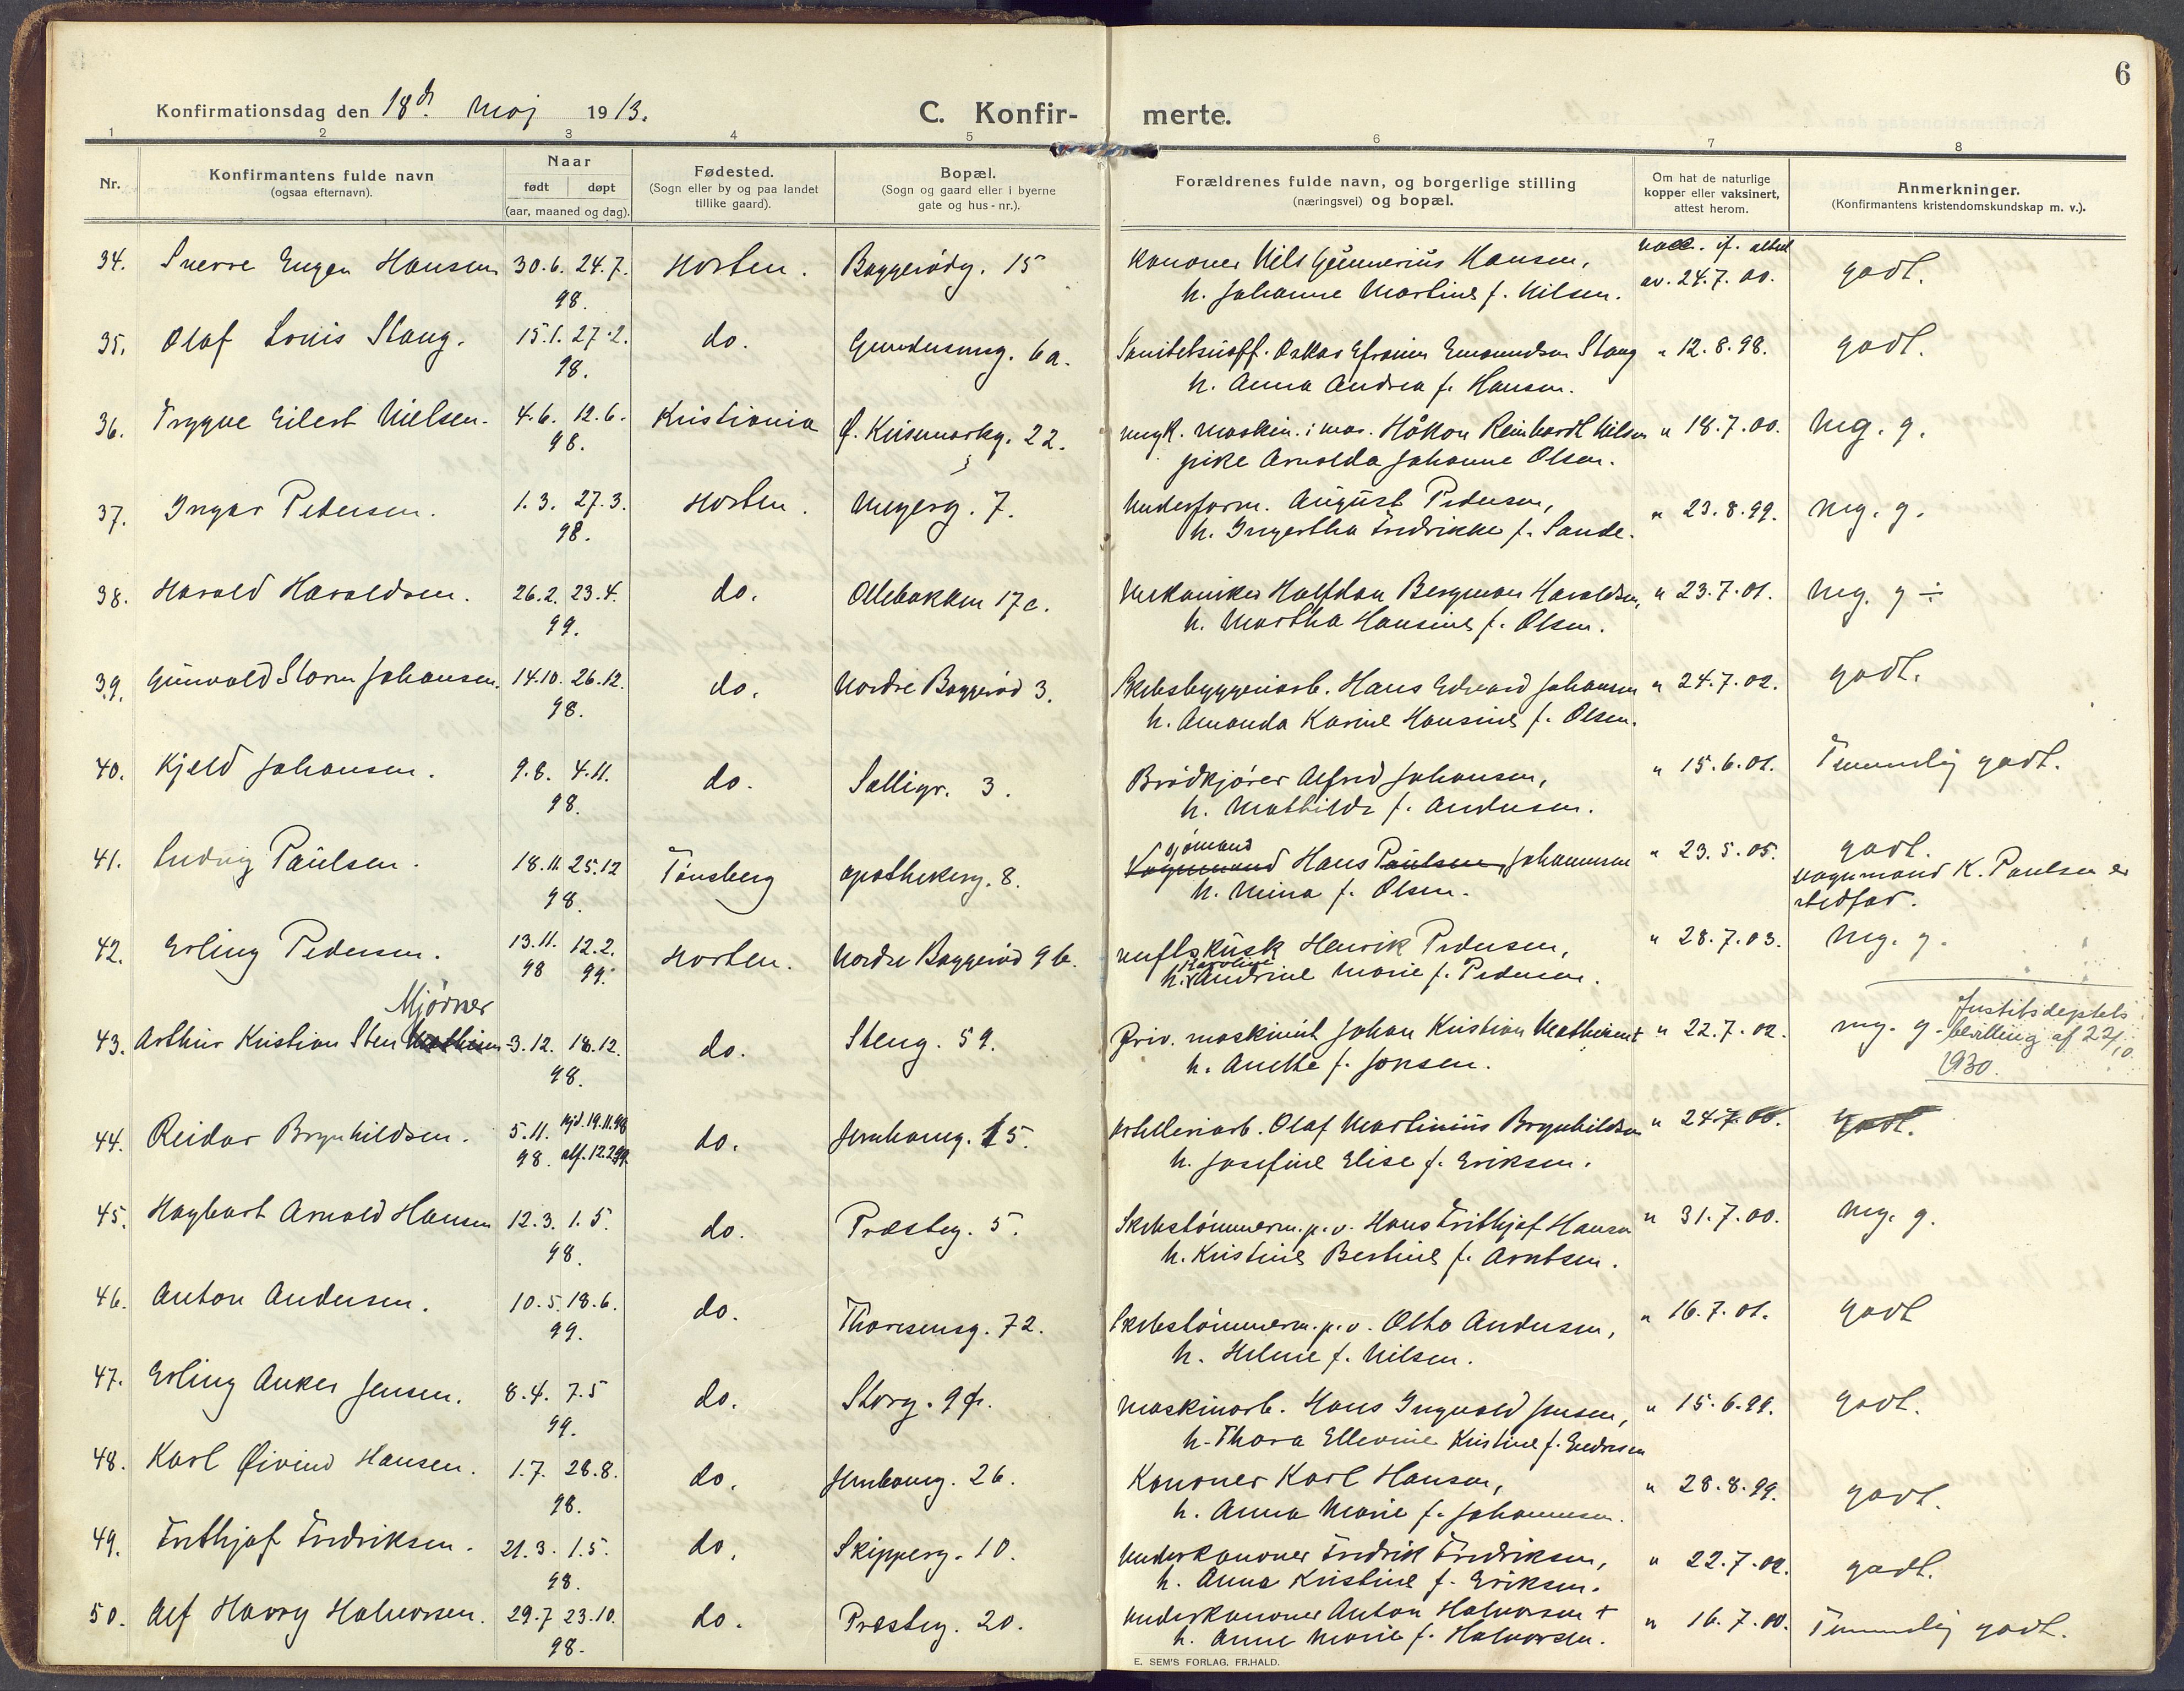 6
Konfirmationsdag den 18de Maj 1913.
C. Konfir- merte.
1 2 3 4 5 6 7 8
Nr. Konfirmantens fulde navn (ogsaa efternavn). Naar født døpt (aar, maaned og dag). Fødested. (Sogn eller by og paa landet tillike gaard). Bopæl. (Sogn og gaard eller i byerne gate og hus-nr.). Forældrenes fulde navn, og borgerlige stilling (næringsvei) og bopæl. Om hat de naturlige kopper eller vaksinert, attest herom. Anmerkninger. (Konfirmantens kristendomskundskap m. v.).
34. Sverre Eugen Hansen 30.6. 24.7. 98. Horten. Baggerødg. 15 Kanoner Nils Gunnerius Hansen, vacc. if. attest av. 24.7.00. godt.
h. Johanne Martine f. Nilsen.
35. Olaf Louis Stang. 15.1. 27.2. 98. do. Gundersensg. 6a. Sanitetsuoff. Oskar Efraim Emanuelsen Stang " 12.8.98. godt.
h. Anna Andrea f. Hansen.
36. Trygve Eilert Nielsen. 4.6. 12.6. 98. Kristiania Ø. Keisemarkg. 22. ungk. maskin. i mar. Håkon Reinhardt Nilsen " 18.7.00. Mg. g.
pike Arnolda Johanne Olsen.
37. Ingar Pedersen. 1.3. 27.3. 98. Horten. Meyerg. 7. Underform. August Pedersen, " 23.8.99. Mg. g.
h. Ingertha Fredrikke f. Sande.
38. Harald Haraldsen. 26.2. 23.4. 99. do. Ollebakken 17c. Mekaniker Halfdan Bergman Haraldsen, " 23.7.01. Mg. g ÷
h. Martha Hansine f. Olsen.
39. Gunvald Storm Johansen. 14.10. 26.12. 98. do. Nordre Baggerød 3. Skibsbyggeriarb. Hans Edvard Johansen " 24.7.02. godt.
h. Amanda Karine Hansine f. Olsen.
40. Kjeld Johansen. 9.8. 4.11. 98. do. Salligr. 3. Brødkjører Alfred Johansen, " 15.6.01. Temmelig godt.
h. Mathilde f. Andersen.
41. Ludvig Paulsen. 18.11. 25.12 98. Tønsberg apothekerg. 8. sjømand Vognmand Hans Paulsen, Johannesen " 23.5.05. godt.
h. Mina f. Olsen. Vognmand K. Paulsen er stedfar.
42. Erling Pedersen. 13.11. 98 12.2. 99. Horten. Nordre Baggerød 9b. kusk Henrik Pedersen, " 28.7.03. Mg. g.
h. Karoline Andrine Marie f. Pedersen.
Mjørner
43. Arthur Kristian Sten Mathisen 3.12. 18.12. 98. do. Steng. 59. Priv. maskinist Johan Kristian Mathisen + " 22.7.02. mg. g. Justitsdeptets bevilling af 22/10 1930.
h. Anethe f. Jonsen.
44. Reidar Brynhildsen. 5.11. 98. hjd. 19.11.98 alf. 12.2.99. do. Jernbaneg. 15. Artilleriarb. Olaf Martinius Brynhildsen " 24.7.00. godt.
h. Josefine Elise f. Eriksen.
45. Hagbart Arnold Hansen 12.3. 1.5. 98. do. Præsteg. 5. Skibstømmerm. p. v. Hans Frithjof Hansen " 31.7.00. Mg. g.
h. Kristine Bertine f. Arntsen.
46. Anton Andersen. 10.5. 18.6. 99. do. Thoresensg. 72. Skibstømmerm. p. v. Otto Andersen, " 16.7.01. godt
h. Helene f. Nilsen.
47. Erling Anker Jensen. 8.4. 7.5 99. do. Storg. 9 Maskinarb. Hans Ingvald Jensen, " 15.6.99. godt.
h. Thora Ellevine Kristine f. Endresen
48. Karl Øivind Hansen. 1.7. 28.8. 98. do. Jernbaneg. 26. Kanoner Karl Hansen, " 28.8.99. godt.
h. Anna Marie f. Johannesen.
49. Frithjof Fredriksen. 21.3. 1.5. 98. do. Skipperg. 10. Underkanoner Fredrik Fredriksen, " 22.7.02. godt.
h. Anna Kristine f. Eriksen.
50. Alf Harry Halvorsen. 29.7 23.10. 98. do. Præsteg. 20. Underkanoner Anton Halvorsen + " 16.7.00. Temmelig godt.
h. Anne Marie f. Halvorsen.
E. SEM'S FORLAG, FR.HALD.